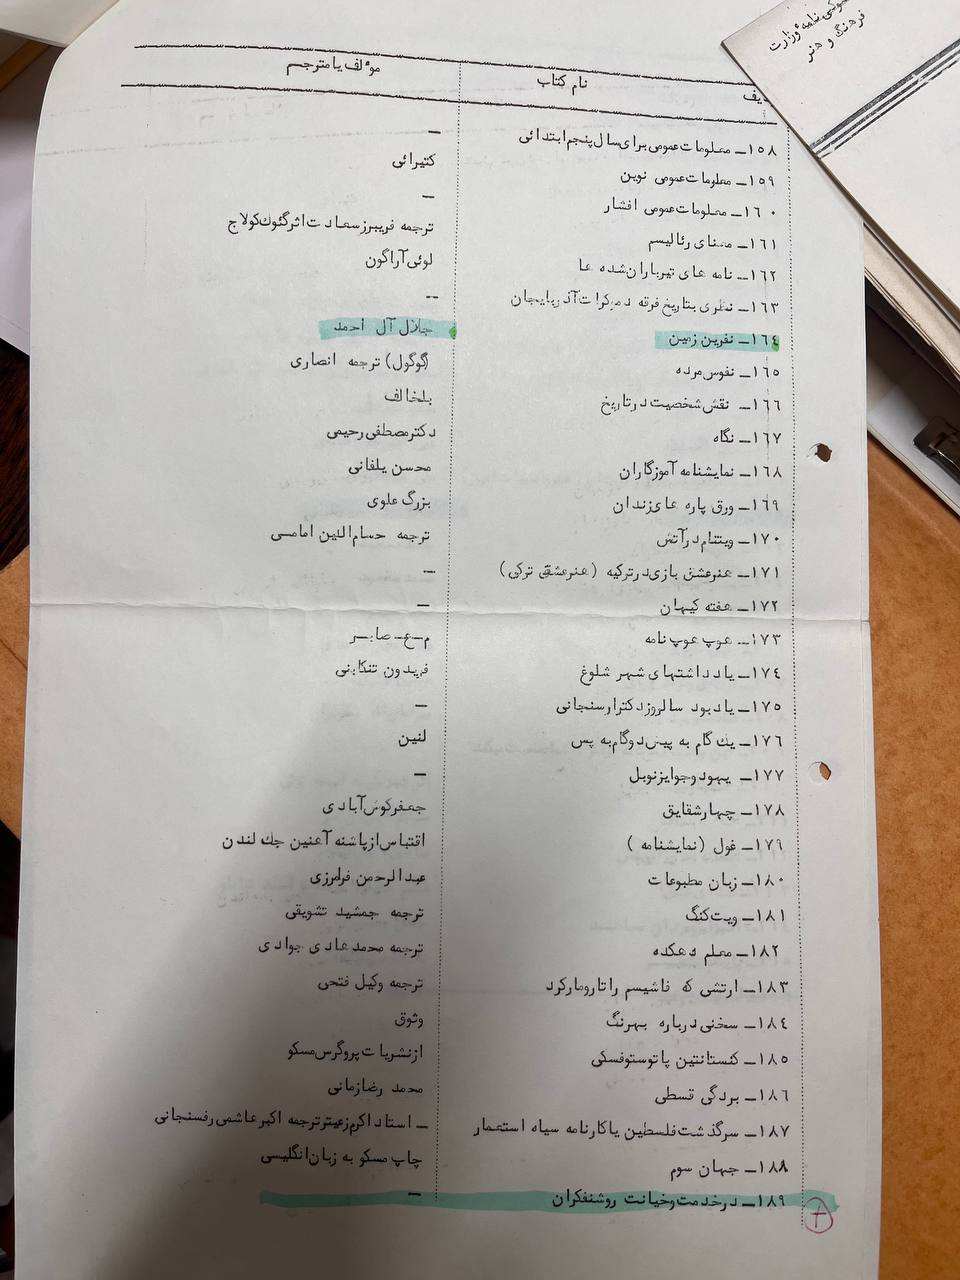 نامه وزارت
فرهنگ و هنر
ردیف نام کتاب مؤلف یا مترجم
۱۵۸ــ معلومات عمومی برای سال پنجم ابتدائی ــ
۱۵۹ــ معلومات عمومی نوین کتیرائی
۱۶۰ــ معلومات عمومی افشار ــ
۱۶۱ــ معنای رئالیسم ترجمه فریبرز سعادت اثر گئورک لوکاچ
۱۶۲ــ نامه های تیرباران شده ها لوئی آراگون
۱۶۳ــ نظری بتاریخ فرقه دموکرات آذربایجان --
۱۶٤ــ نفرین زمین جلال آل احمد
۱۶۵ــ نفوس مرده (گوگول) ترجمه انصاری
۱۶۶ــ نقش شخصیت در تاریخ بلخانف
۱۶۷ــ نگاه دکتر مصطفی رحیمی
۱۶۸ــ نمایشنامه آموزگاران محسن یلفانی
۱۶۹ــ ورق پاره های زندان بزرگ علوی
۱۷۰ــ ویتنام در آتش ترجمه حسام الدین امامی
۱۷۱ــ هنر عشق بازی در ترکیه (هنر عشق ترکی) --
۱۷۲ــ هفته کیهان ــ
۱۷۳ــ هوپ هوپ نامه م ــ ع ــ صابر
۱۷٤ــ یادداشتهای شهر شلوغ فریدون تنکابنی
۱۷۵ــ یادبود سالروز دکتر ارسنجانی ــ
۱۷۶ــ یک گام به پیش دو گام به پس لنین
۱۷۷ــ یهود و جوایز نوبل ــ
۱۷۸ــ چهار شقایق جعفر کوش آبادی
۱۷۹ــ غول (نمایشنامه) اقتباس از پاشنه آهنین جک لندن
۱۸۰ــ زبان مطبوعات عبدالرحمن فرامرزی
۱۸۱ــ ویت کنگ ترجمه جمشید تشویقی
۱۸۲ــ معلم دهکده ترجمه محمد هادی جوادی
۱۸۳ــ ارتشی که فاشیسم را تارومار کرد ترجمه وکیل فتحی
۱۸٤ــ سخنی درباره بهرنگ وثوق
۱۸۵ــ کنستانتین پائوستوفسکی از نشریات پروگرس مسکو
۱۸۶ــ بردگی قسطی محمد رضا زمانی
۱۸۷ــ سرگذشت فلسطین یا کارنامه سیاه استعمار ــ استاد اکرم زعیتر ترجمه اکبر هاشمی رفسنجانی
۱۸۸ــ جهان سوم چاپ مسکو به زبان انگلیسی
۱۸۹ــ در خدمت و خیانت روشنفکران ــ